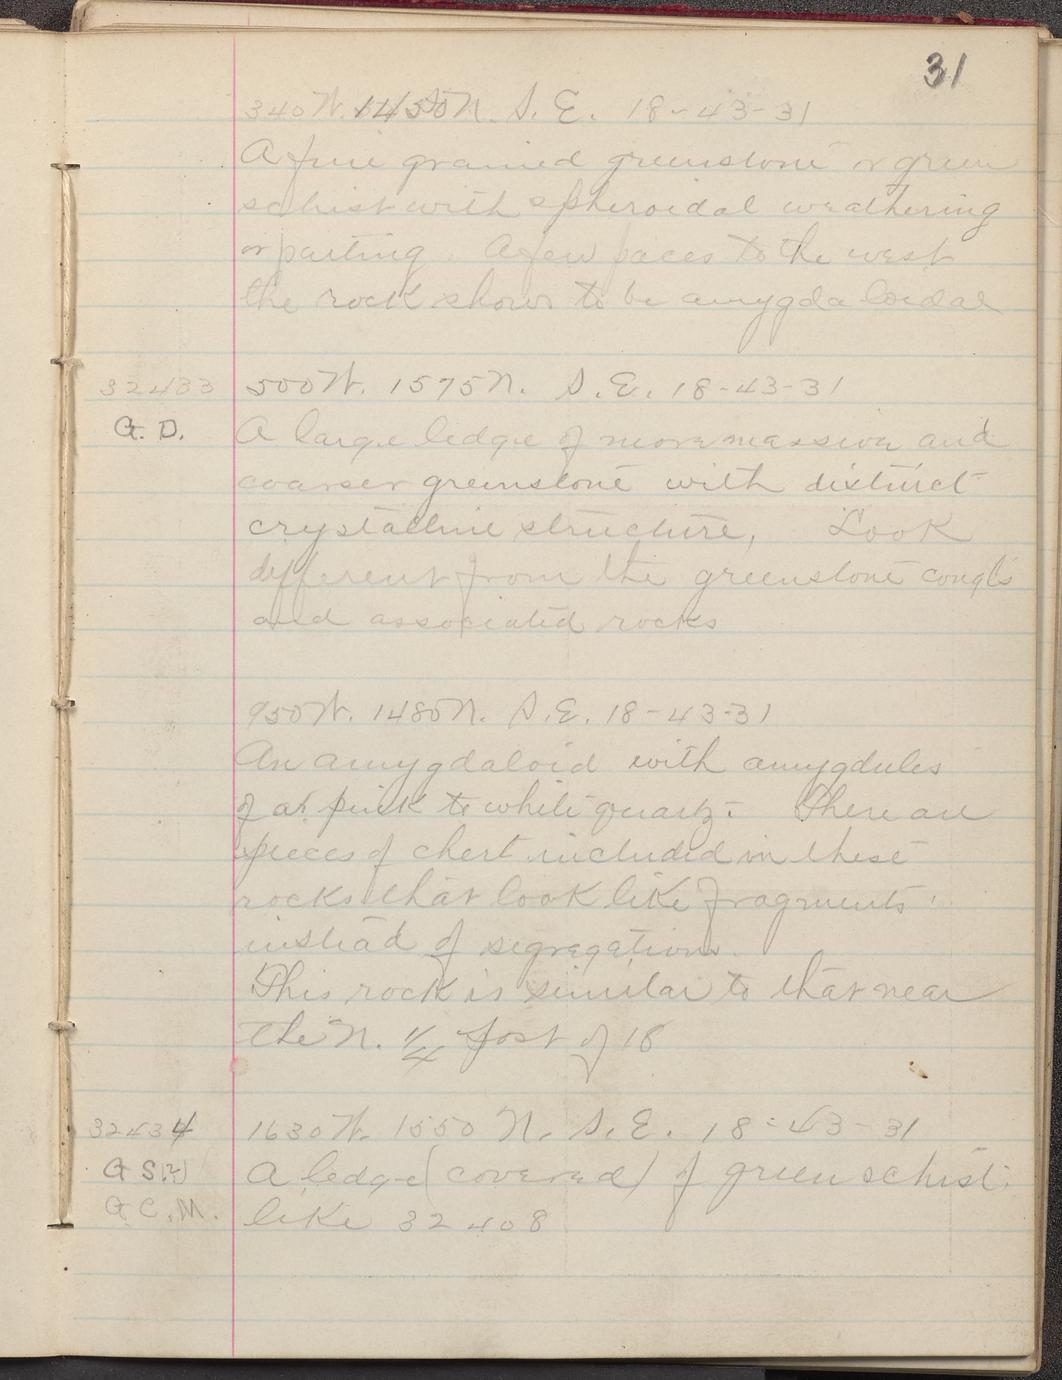 31
340W. 1450N. S.E. 18-43-31
A fine grained greenstone or green
schist with spheroidal weathering
or parting. A few paces to the west
the rock shows to be amygdaloidal
32433 500W. 1575N. S.E. 18-43-31
G. D. A large ledge of more massive and
coarser greenstone with distinct
crystalline structure, Look
different from the greenstone congl's
and associated rocks
950W. 1480N. S.E. 18-43-31
An amygdaloid with amygdules
of a pink to white quartz. There are
pieces of chert included in these
rocks that look like fragments
instead of segregations.
This rock is similar to that near
the N. 1/4 post of 18
32434 1630W. 1550 N. S.E. 18-43-31
G S(?) A ledge (covered) of green schist
G.C.M. like 32408